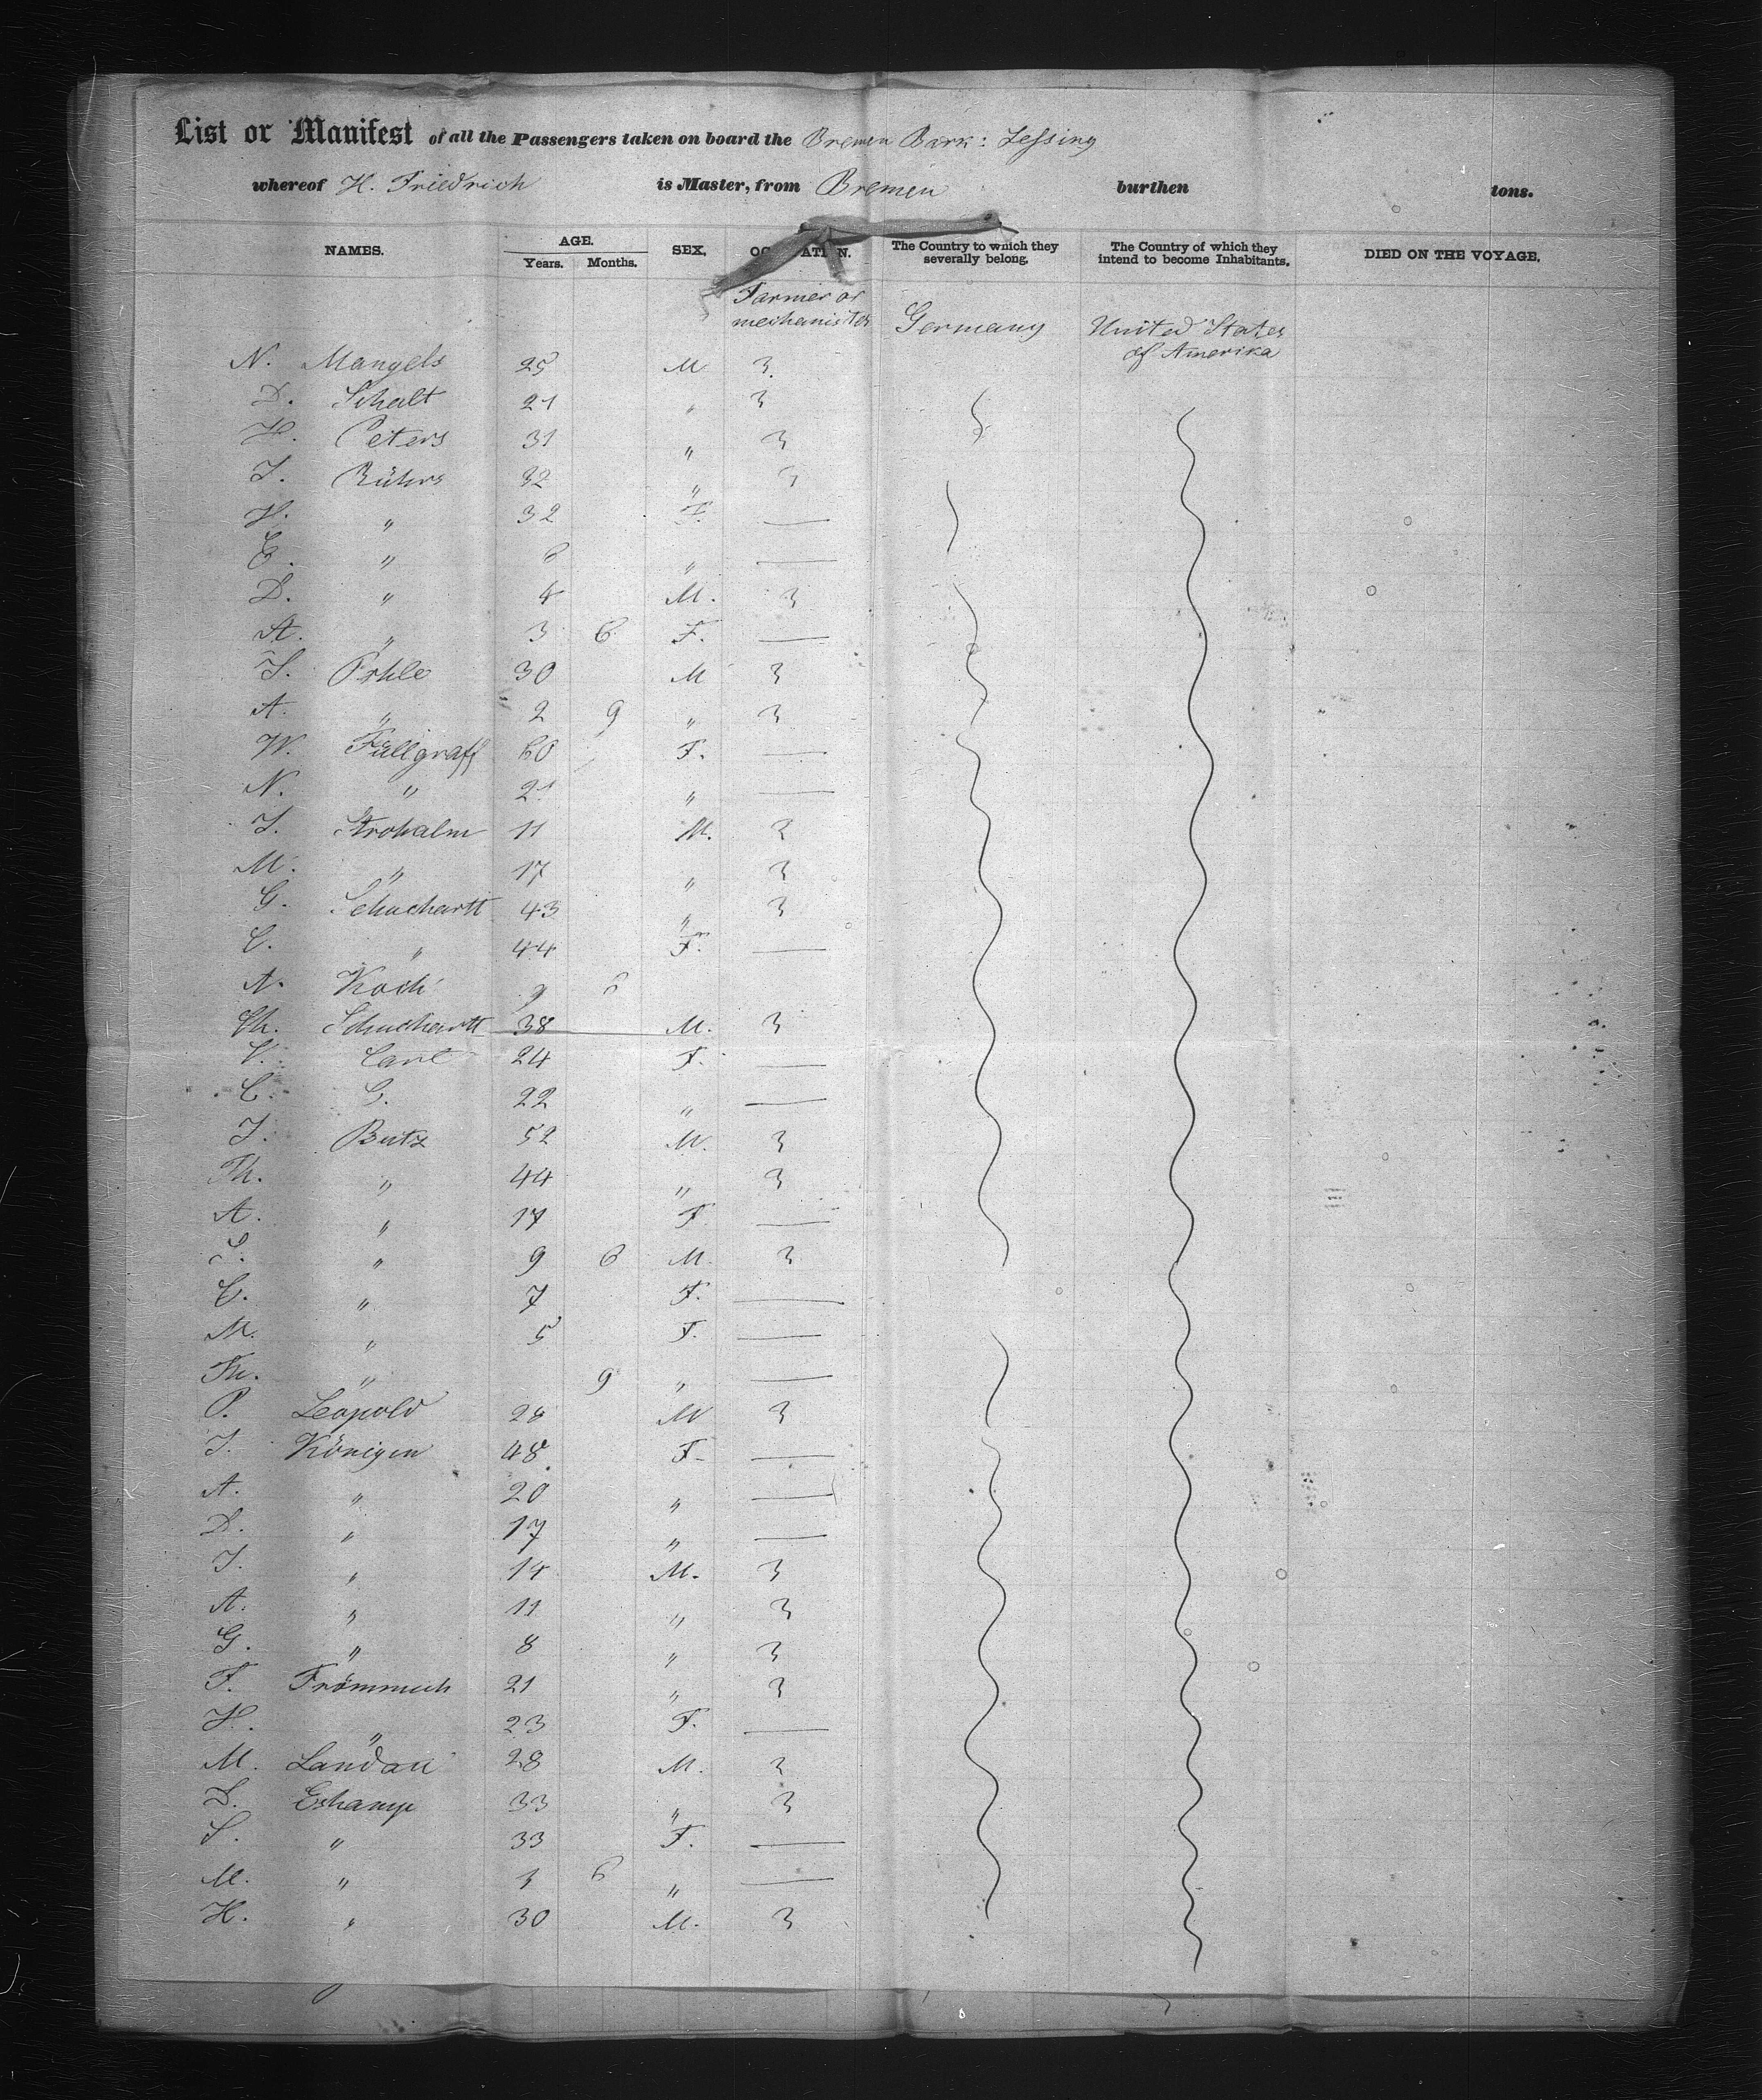 List or Manifest of all the Passengers taken on board the Bremen Bark: Lessing
whereof H. Friedrich is Master, from Bremen burthen tons.
NAMES. AGE. Years. Months. SEX. OCCUPATION. The Country to which they severally belong. The Country of which they intend to become Inhabitants. DIED ON THE VOYAGE.
Farmer or mechanister Germany United States of Amerika
N. Mangels 25 M 3
D. Schalt 21 " 3
H. Peters 31 " 3
J. Rührs 32 " 3
H. " 32 F. —
E. " 6 " —
D. " 4 M. 3
A. " 3 6 F. —
J. 30 M 3
A. " 2 9 " 3
W. Füllgraff 60 F. —
N. " 21 " —
J. Strohalm 11 M. 3
M. " 17 " 3
G. Schuchartt 43 " 3
C. " 44 F. —
A. Koch 9 6
Ch. Schuchartt 38 M. 3
C. Carl 24 F. —
C. G. 22 " —
J. Butz 52 M. 3
Th. " 44 " 3
A. " 17 F —
S. " 9 6 M. 3
C. " 7 F. —
M. " 5 F. —
Th. " 9 " —
P. Leopold 28 M 3
J. Königen 48 F —
A. " 20 " —
D. " 17 " —
J. " 14 M. 3
A. " 11 " 3
G. " 8 " 3
F. Frömmich 21 " 3
H. " 23 F. —
M. Landau 28 M. 3
L. 33 " 3
S. " 33 F. —
M. " 6 " —
H. " 30 M. 3